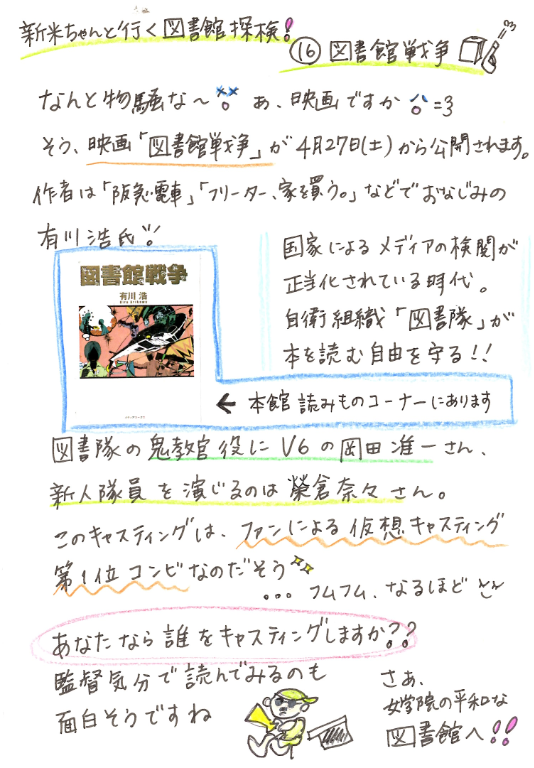 新米ちゃんと行く図書館探検!
⑯ 図書館戦争
なんと物騒な〜 あ、映画ですか =3
そう、映画「図書館戦争」が4月27日(土)から公開されます。
作者は「阪急電車」「フリーター、家を買う。」などでおなじみの
有川浩氏!!
図書館戦争
有川 浩
国家によるメディアの検閲が
正当化されている時代。
自衛組織「図書隊」が
本を読む自由を守る!!
← 本館 読みものコーナーにあります
図書隊の鬼教官役にV6の岡田准一さん、
新人隊員を演じるのは榮倉奈々さん。
このキャスティングは、ファンによる仮想キャスティング
第1位コンビなのだそう
... フムフム、なるほど
あなたなら誰をキャスティングしますか??
監督気分で読んでみるのも
面白そうですね
さぁ、
女学院の平和な
図書館へ!!